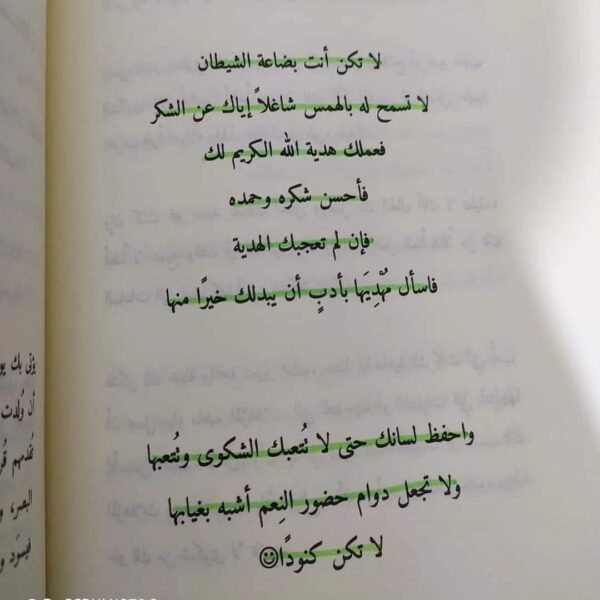 لا تكن أنت بضاعة الشيطان
لا تسمح له بالهمس شاغلاً إياك عن الشكر
فعملك هدية الله الكريم لك
فأحسن شكره وحمده
فإن لم تعجبك الهدية
فاسأل مُهْدِيَها بأدبٍ أن يبدلك خيرًا منها
واحفظ لسانك حتى لا تُتعبك الشكوى وتُتعبها
ولا تجعل دوام حضور النِعم أشبه بغيابها
لا تكن كنودًا☺
يؤتى بك يو
أن وُلدت
تمدهم قُر
البصر، و
فيسَود و